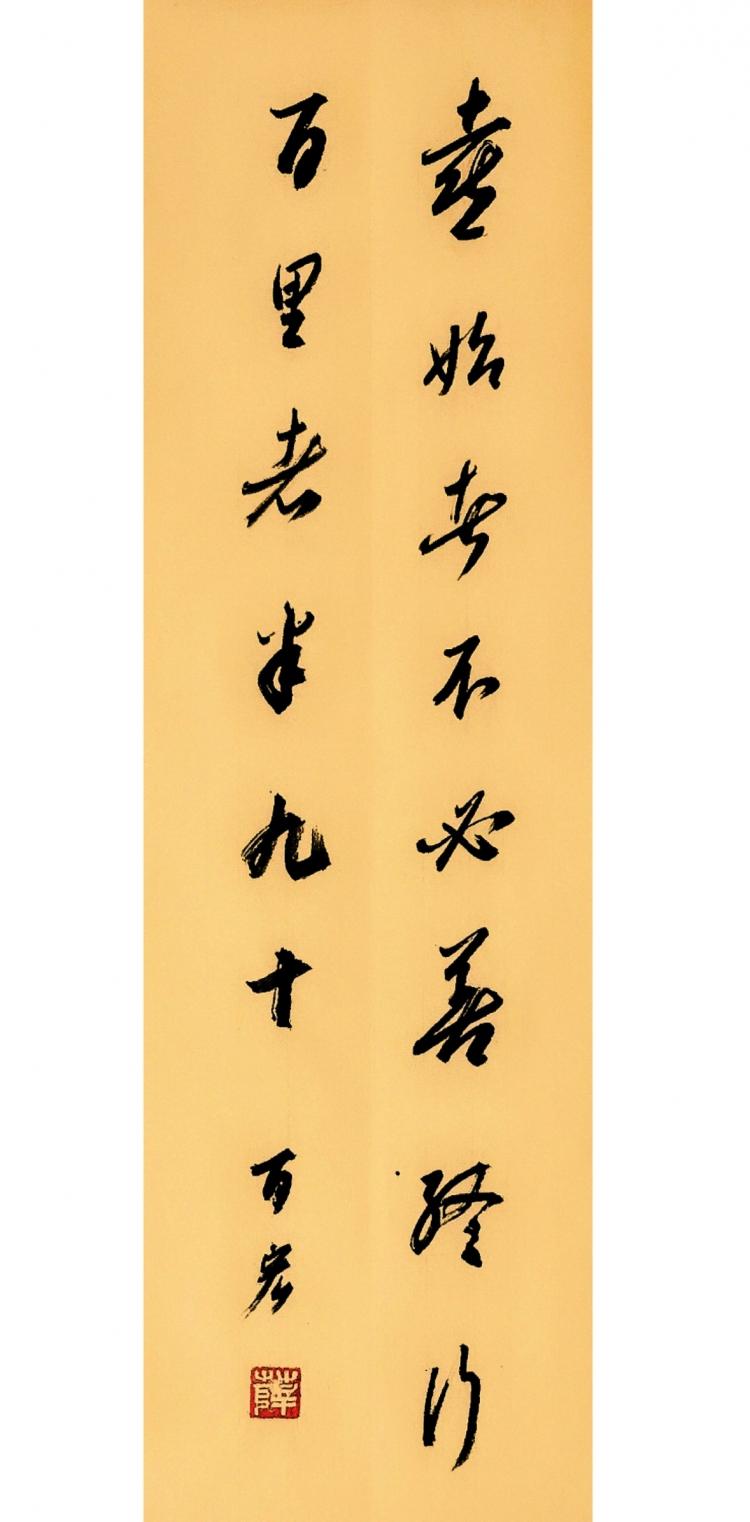 始者不必善終行
百里者半九十
百宏
薛